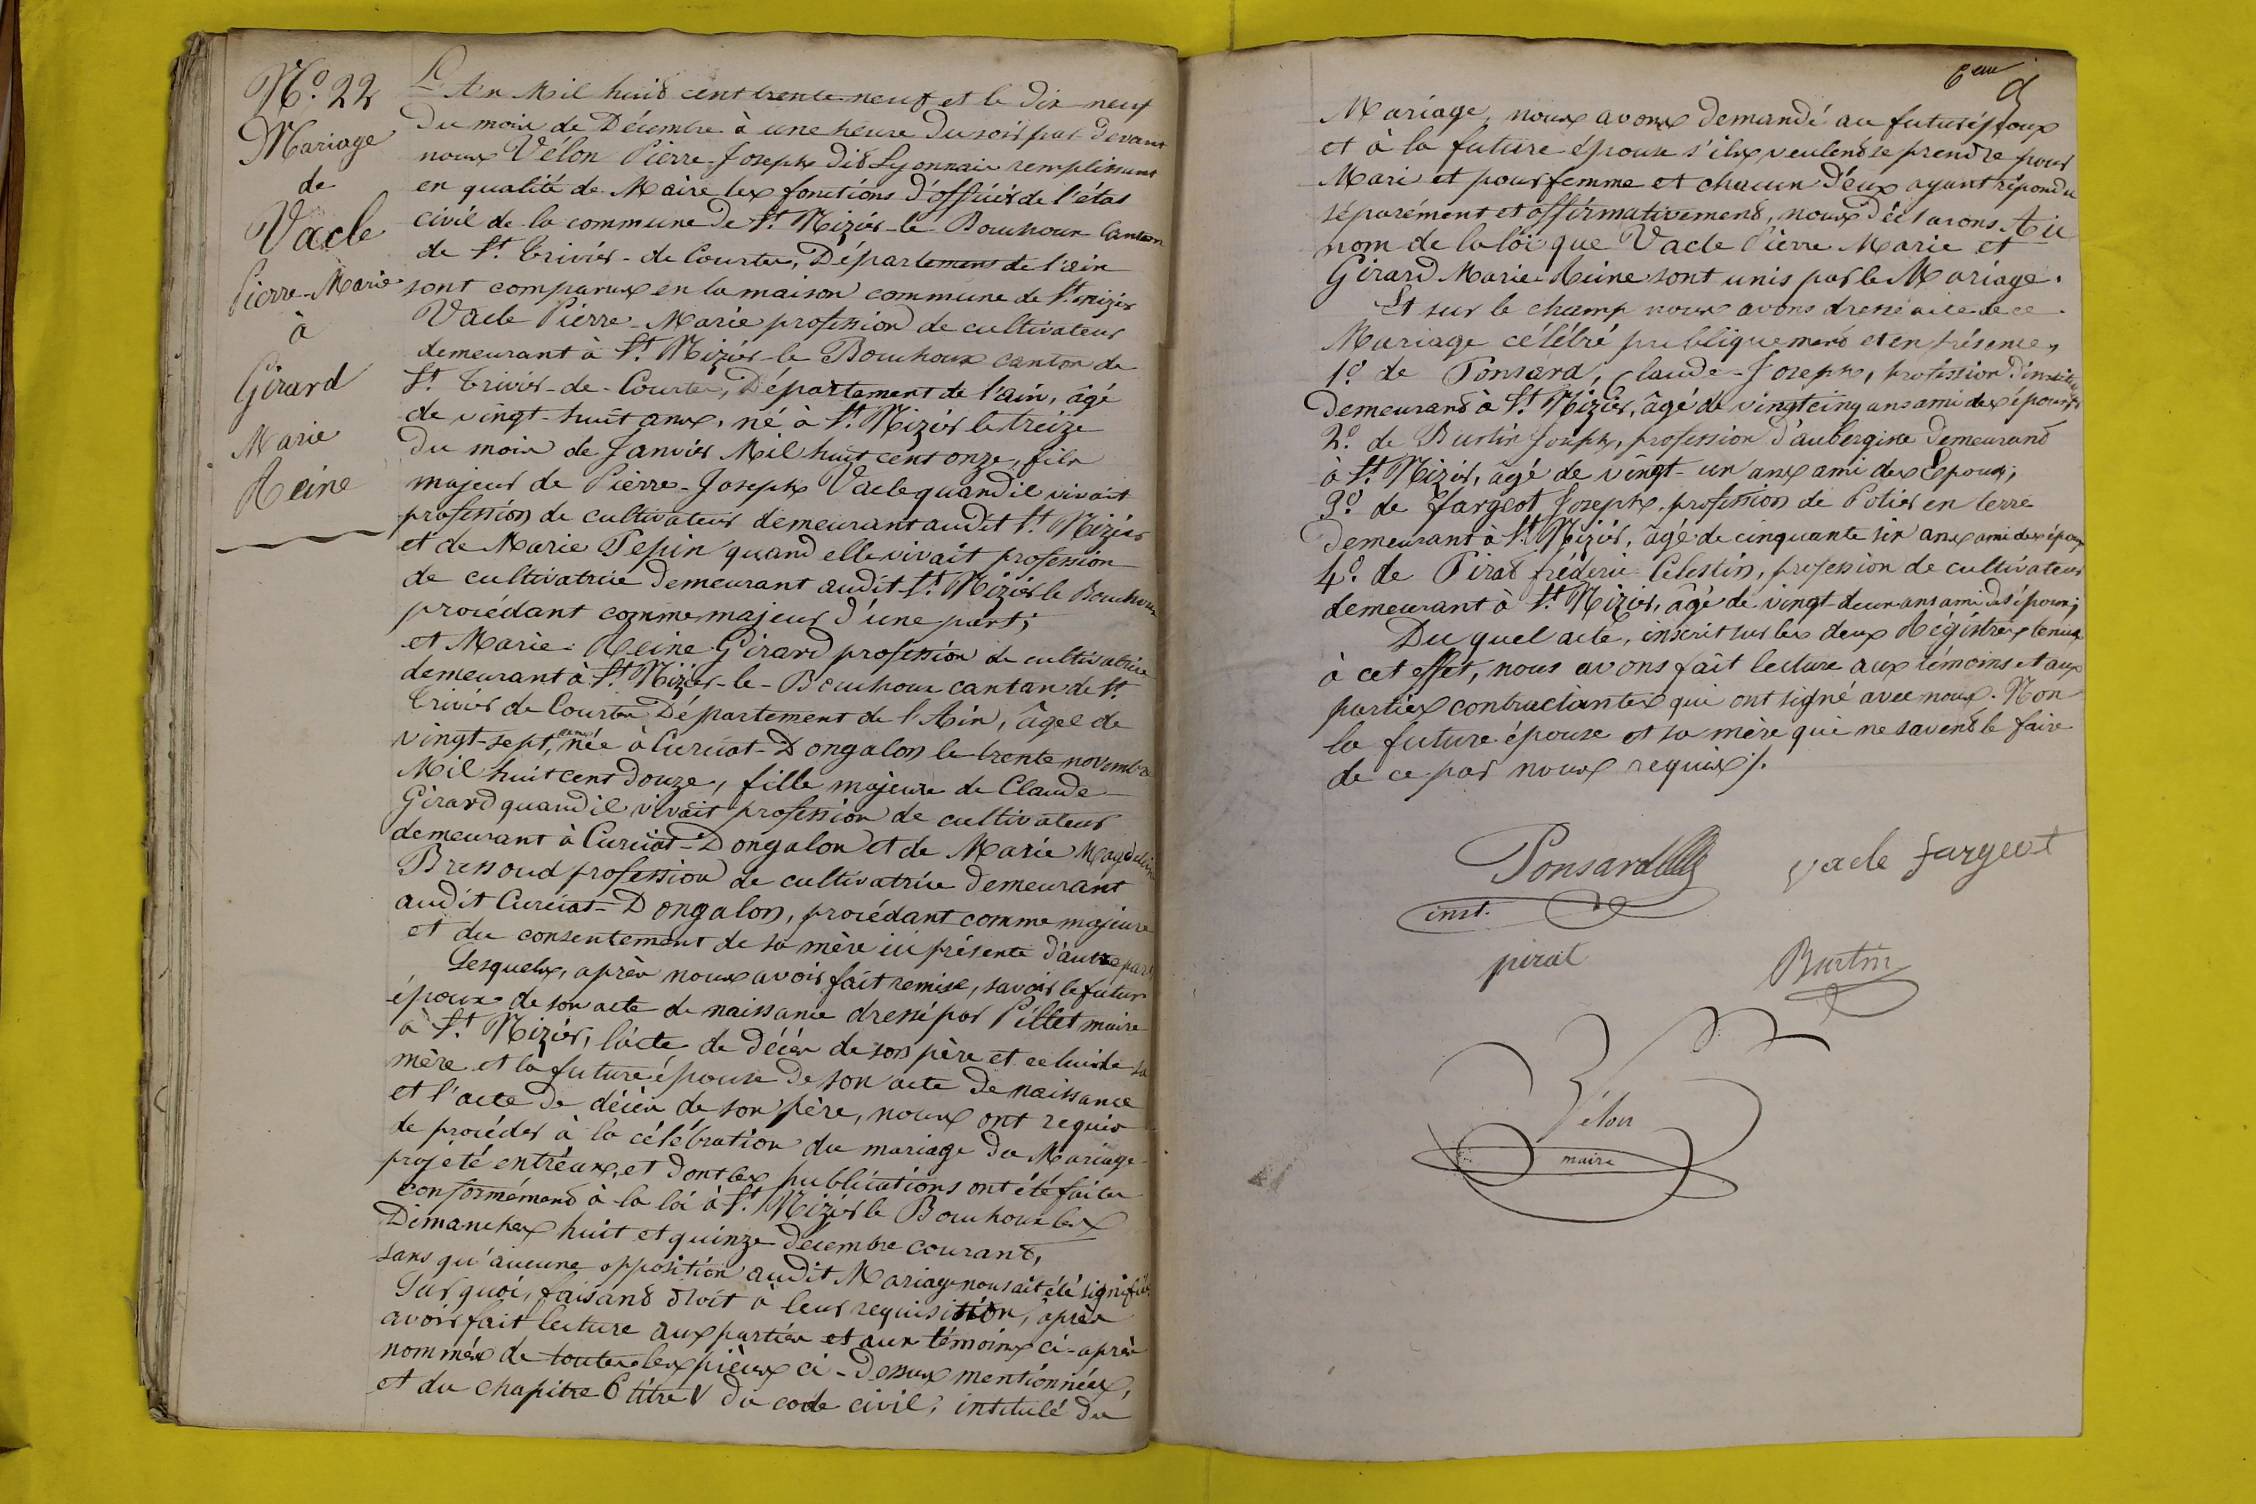 N.º 22
Mariage
de
Vacle
Pierre-Marie
à
Girard
Marie
Reine
L'An Mil huit cent trente neuf et le dix neuf
du mois de Décembre à une heure du soir par devant
nous Vélon Pierre-Joseph dit Lyonnais remplissant
en qualité de Maire les fonctions d'officier de l'état
civil de la commune de St. Nizier-le-Bouchoux canton
de St. Trivier-de-Courtes, Département de l'ain
sont comparus en la maison commune de St. nizier
Vacle Pierre-Marie profession de cultivateur
demeurant à St. Nizier-le Bouchoux canton de
St. Trivier-de-Courtes, Département de l'ain, âgé
de vingt-huit ans, né à St. Nizier le treize
du mois de Janvier Mil huit cent onze, fils
majeur de Pierre-Joseph Vacle quand il vivait
profession de cultivateur demeurant audit St. Nizier
et de Marie Pepin quand elle vivait profession
de cultivatrice demeurant audit St. Nizier le Bouchoux
procédant comme majeur d'une part;
et Marie-Reine Girard profession de cultivatrice
demeurant à St. Nizier-le-Bouchoux cantan de St.
Trivier de Courtes Département de l'Ain, âgée de
vingt-sept, ans née à Curciat-Dongalon le trente novembre
Mil huit cent douze, fille majeure de Claude
Girard quand il vivait profession de cultivateur
demeurant à Curciat-Dongalon et de Marie Magdeleine
Bressoud profession de cultivatrice demeurant
audit Curciat-Dongalon, procédant comme majeure
et du consentement de sa mère ici présente d'autre part
Lesquels, après nous avoir fait remise, savoir le futur
époux de son acte de naissance dressé par Pillet maire
à St. Nizier, l'acte de décès de son père et celui de sa
mère et la future épouse de son acte de naissance
et l'acte de décès de son père, nous ont requis
de procéder à la célébration du mariage du Mariage
projeté entr'eux, et dont les publications ont été faites
conformément à la loi à St. Nizier le Bouchoux les
Dimanches huit et quinze décembre courant,
sans qu'aucune opposition audit Mariage nous ait été signifiée.
Sur quoi, faisant droit à leur requisition, après
avoir fait lecture aux parties et aux témoins ci-après
nommés de toutes les pièces ci-dessus mentionnées,
et du chapitre 6 titre V du code civil, intitulé du
6eme
Mariage, nous avons demandé au futur époux
et à la future épouse s'ils veulent se prendre pour
Mari et pour femme et chacun d'eux ayant répondu
séparément et affirmativement, nous déclarons Au
nom de la loi que Vacle Pierre Marie et
Girard Marie-Reine sont unis par le Mariage.
Et sur le champ nous avons dressé acte de ce
Mariage célébré publiquement et en présence,
1º. de Ponsard, Claude-Joseph, profession d'institut
Demeurant à St. Nizier, âgé de vingt cinq ans ami des époux;
2º. de Burtin Joseph, profession d'aubergiste demeurant
à St. Nizier, âgé de vingt-un ans ami des Epoux;
3º. de fargeot Joseph profession de Potier en terre
Demeurant à St. Nizier, âgé de cinquante six ans ami des époux
4º. de Pirat fréderic Célestin, profession de cultivateur
demeurant à St. Nizier, âgé de vingt-deux ans ami des époux;
Du quel acte, inscrit sur les deux Régistres tenus
à cet effet, nous avons fait lecture aux témoins et aux
parties contractantes qui ont signé avec nous. Non
la future épouse et sa mère qui ne savent le faire
de ce par nous requis./.
Ponsard
inst.
vacle fargeot
pirat
Burtin
Vélon
maire